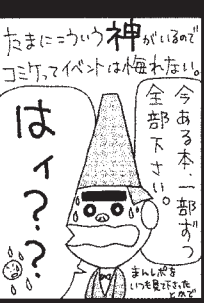 たまにこういう神がいるので
コミケってイベントは侮れない。
今ある本、一部ずつ
全部下さい。
はイ？？
まんレポを
いつも見て下さった
とかで